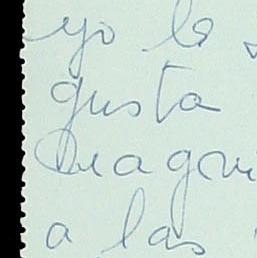 yo le
gusta
a las